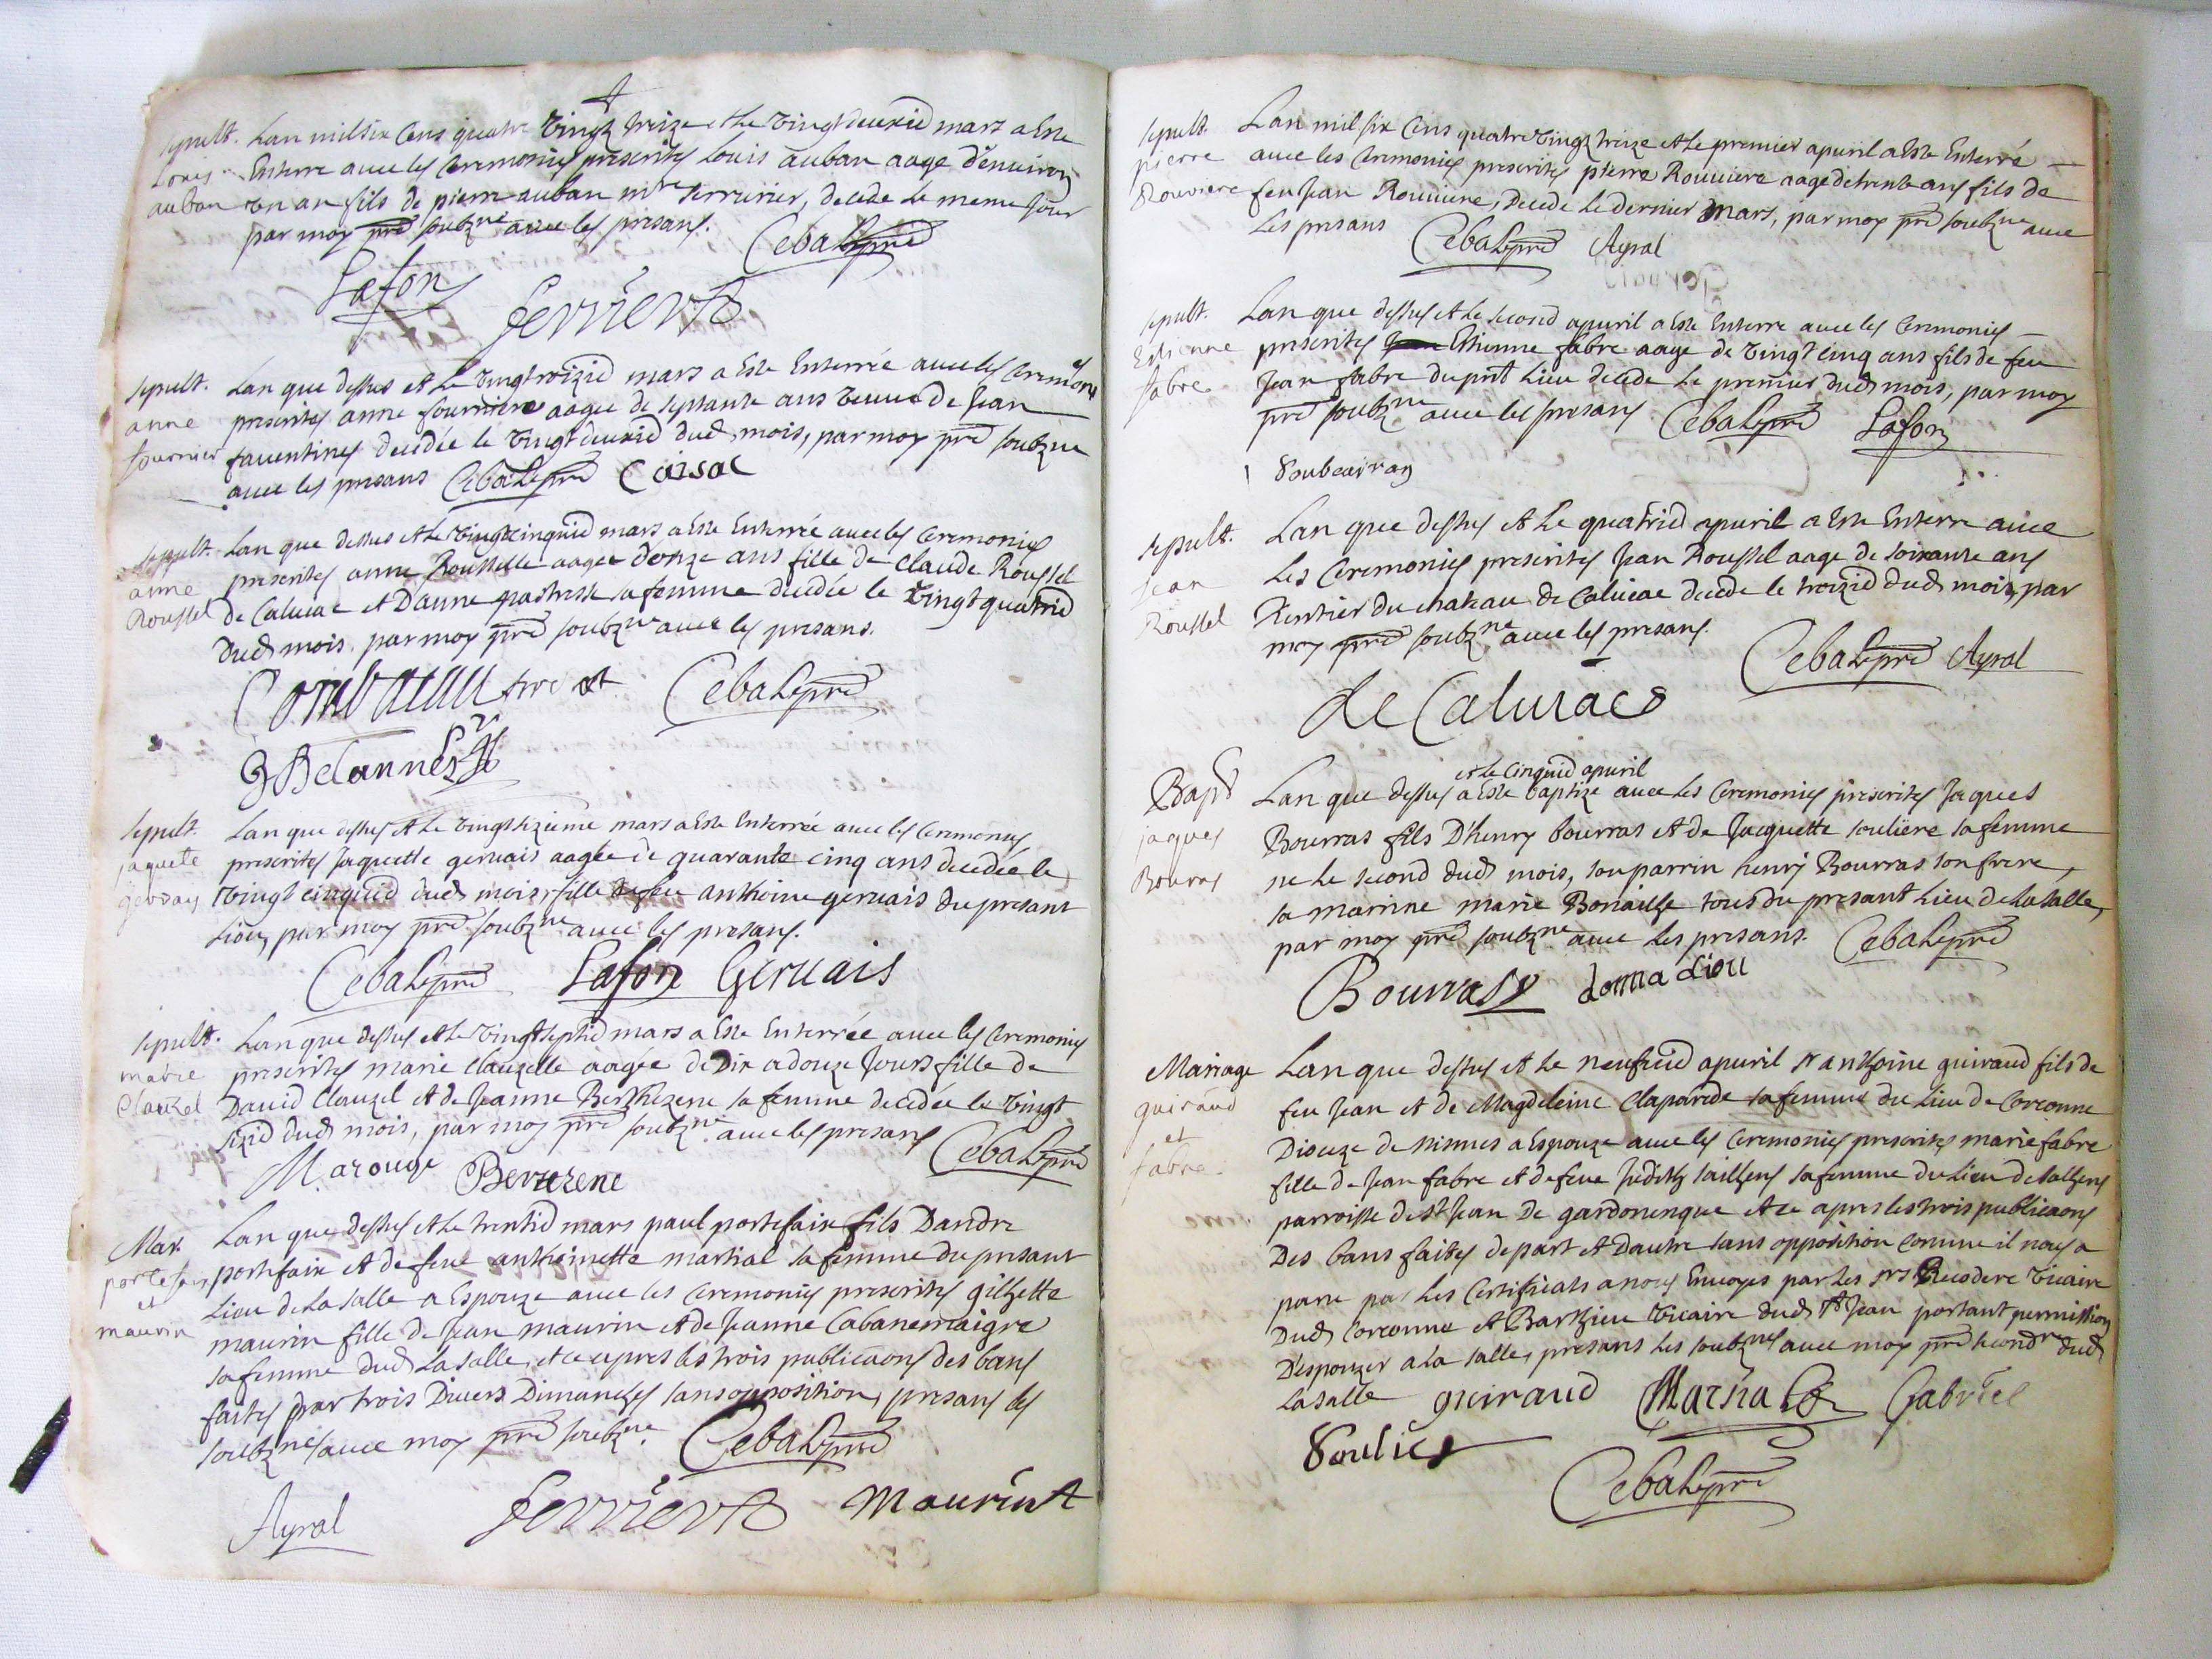 sepult. Lan mil six Cens quatre vingt treize et le vingt deuxie mars a Este
Louis Enterre avec les ceremonies prescrites Louis auban aage d'environ
auban un an fils de pierre auban mtre serrurier, decede le meme jour
par moy pre soubzne avec les presans. Cebal pre
Lafon
ferriere
sepult. Lan que dessus et le vingt troizie mars a Este Enterrée avec les ceremones
anne prescrites anne fourniere aagee de septante ans veuve de Jean
fournier faventines decedée le vingt deuxie dud mois, par moy pre soubzne
avec les presans Cebal pre Coirsac
sepult. Lan que dessus et le vingt cinquie mars a Este Enterrée avec les ceremonies
anne prescrites anne Rousselle aagee donze ans fille de Claude Roussel
Roussel de Caluiac et D'anne pastresse sa femme decedée le vingt quatrie
dud mois, par moy pre soubzne avec les presans.
Cebal pre
sepult. Lan que dessus et le vingt sizieme mars a Este Enterrée avec les ceremonies
jaquete prescrites Jaquette gervais aagée de quarante cinq ans decedée le
gervay vingt cinquie dud mois, fille de feu anthoine gervais du presant
Lieu, par moy pre soubzne avec les presans.
Cebal pre Lafon Gervais
sepult. Lan que dessus et le vingt septie mars a Este Enterrée avec les ceremonies
marie prescrites marie clauzelle aagée de Dix a douze Jours fille de
Clauzel David Clauzel et de Jeanne Berthezene sa femme decedée le vingt
sizie dud mois, par moy pre soubzne avec les presans Cebal pre
Marouge Berthezene
Mar. Lan que dessus et le trentie mars paul portefaix fils Dandre
portefaix portefaix et de feue anthoinette martial sa femme du presant
et Lieu de La salle a Espouze avec les ceremonies prescrites gilhette
maurin maurin fille de Jean maurin et de Jeanne Cabanemaigre
sa femme dud La salle, et ce apres les trois publicaons des bans
faites par trois Divers Dimanches sans opposition, presans les
soubznes avec moy pre soubzne. Cebal pre
Ayral ferriere Maurin
sepult. Lan mil six Cens quatre vingt treize et le premier apvril a Este Enterré
pierre avec les ceremonies prescrites pierre Rouviere aage de trente ans fils de
Rouviere feu Jean Rouviere, decede le dernier mars, par moy pre soubzne avec
Les presans Cebal pre Ayral
sepult. Lan que dessus et le second apvril a Este Enterre avec les ceremonies
Estienne prescrites Etienne fabre aage de vingt cinq ans fils de feu
fabre Jean fabre du prnt Lieu decede le premier dud mois, par moy
pre soubzne avec les presans Cebal pre Lafon
Soubeairan
sepult. Lan que dessus et le quatrie apvril a Este Enterre avec
Jean Les Ceremonies prescrites Jean Roussel aage de soixante ans
Roussel Rentier du chateau de Caluiac decede le troizie dud mois, par
moy pre soubzne avec les presans.
Cebal pre Ayral
de Caluiac
et le Cinquie apvril
Bapt Lan que dessus a Este baptize avec les Ceremonies prescrites Jaques
jaques Bourras fils D'henry bourras et de Jacquette souliere sa femme
Bourras ne le second dud mois, son parrin henry Bourras son frere,
sa marrine marie Bonaille tous du presant Lieu de La salle,
par moy pre soubzne avec les presans. Cebal pre
Bourras donnadiou
Mariage Lan que dessus et le neufvie apvril sr anthoine guiraud fils de
guiraud feu Jean et de Magdeleine Claparede sa femme du Lieu de Corconne
et Dioceze de nismes a Espouze avec les Ceremonies prescrites marie fabre
fabre fille de Jean fabre et de feue Judith sailhens sa femme du Lieu de salhens
parroisse de St Jean De gardonenque et ce apres les trois publicaons
Des bans faites de part et Dautre sans opposition comme il nous a
paru par Les Certificats a nous Envoyes par Les srs Recodere vicaire
Dud Corconne et Barthieu vicaire dud St Jean portant permission
D'espouzer a La salle, presans Les soubznes avec moy pre secondre dud
La salle guiraud Martial Gabriel
Soulier
Cebal pre